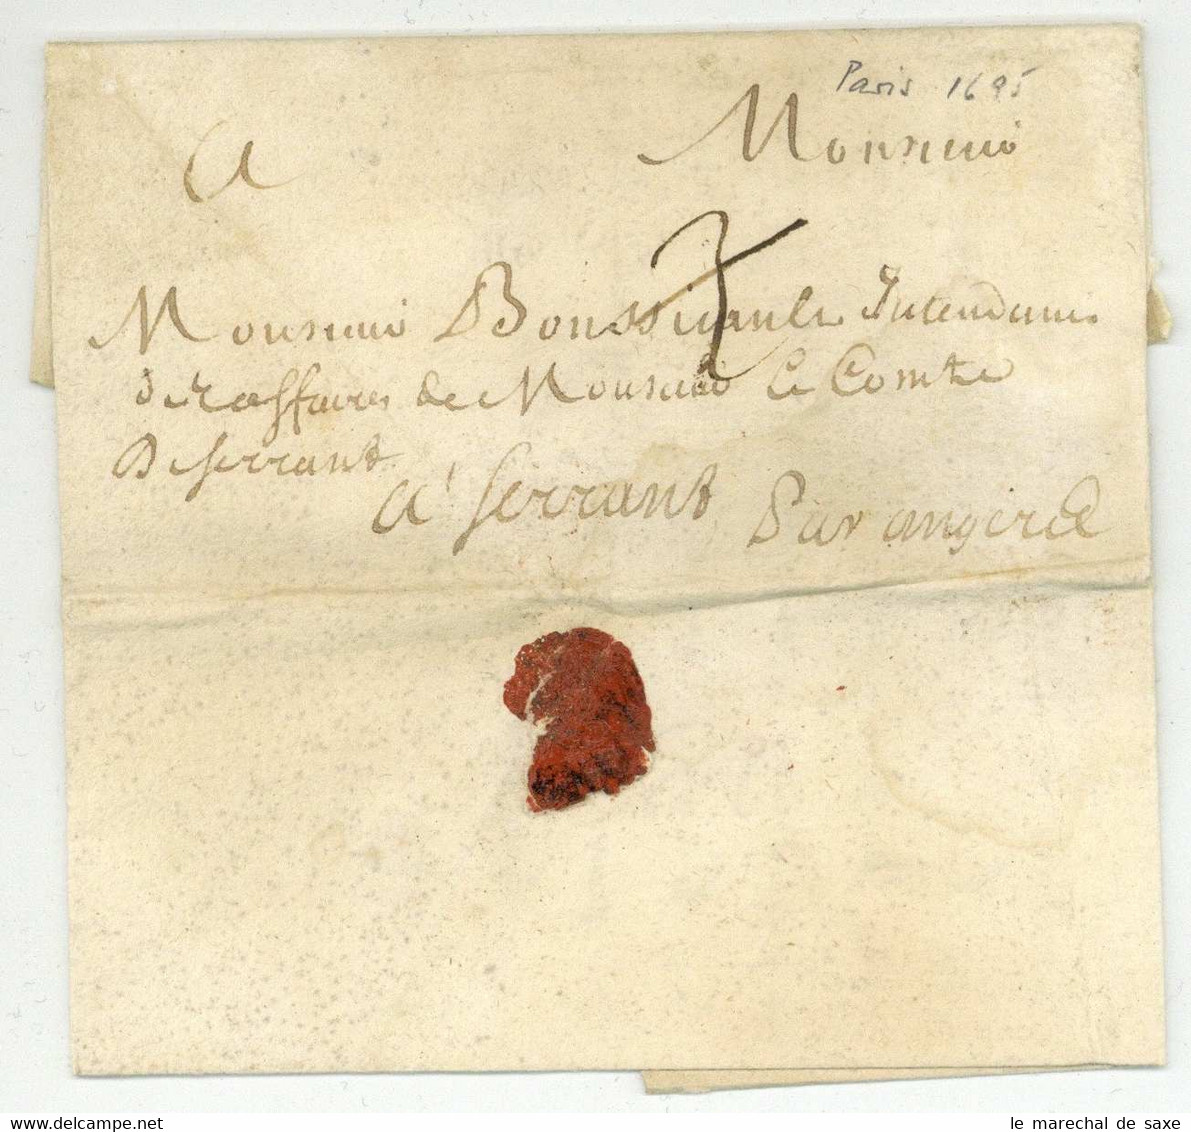 Paris 1695
A Monsieur
3
Monsieur Boussicault Intendant
des affaires de Monsieur Le Comte
De Serrant
A Serrant Par angers
le marechal de saxe